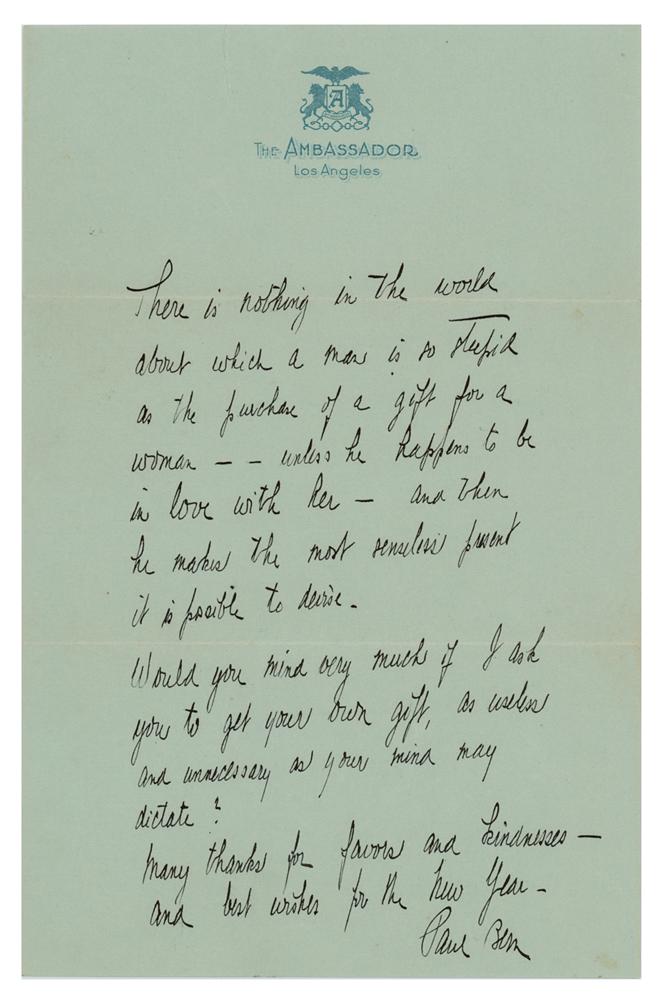 A
THE AMBASSADOR
Los Angeles
There is nothing in the world
about which a man is so stupid
as the purchase of a gift for a
woman – – unless he happens to be
in love with her – and then
he makes the most senseless present
it is possible to devise –
Would you mind very much if I ask
you to get your own gift, as useless
and unnecessary as your mind may
dictate ?
Many thanks for favors and kindnesses –
and best wishes for the New Year –
Paul Bern